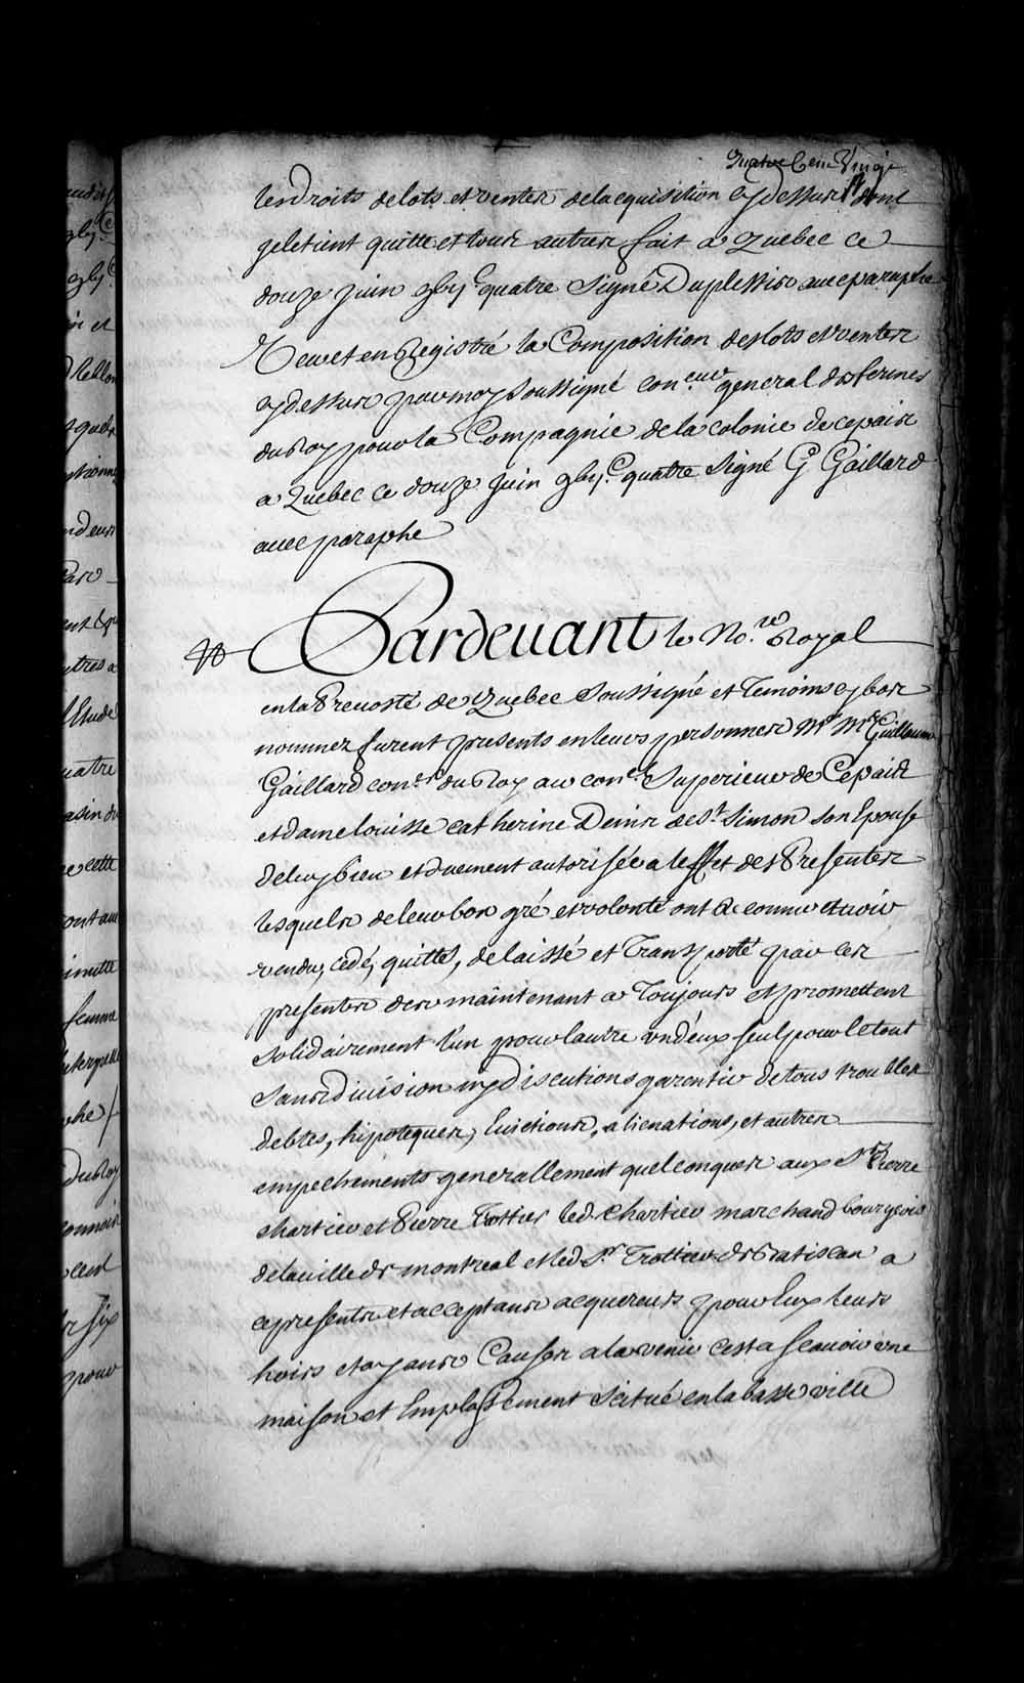 Quatre Cent Vingt
les droits de lots et ventes de lacquisition cy dessus dont
je le tient quitte et tous autres fait a Quebec ce
douze juin 9bij.C quatre signé Duplessis avec paraphe
Receu et enRegistré la Composition des lots et ventes
cy dessus par moy soussigné con.eur general des fermes
du Roy pour la Compagnie de la colonie de ce pais
a Quebec ce douze juin 9bij.C quatre signé G Gaillard
avec paraphe
Pardeuant le No.re Royal
en la Preuosté de Quebec soussigné et Temoins cy bas
nommez furent presents en leurs personnes Mr Me Guillaume
Gaillard con.er du Roy au con.el Superieur de Ce pais
et dame louisse catherine Denis de St Simon son Epouse
de luy bien et duement autorisée a leffet des Presentes
lesquels de leur bon gré et volonté ont Reconnu et avoir
vendu, cedé, quitté, delaissé et Transporté par ces
presentes des maintenant a Toujours et promettent
solidairement l'un pour lautre un deux seul pour le tout
sans diuision ny discutions garentir de tous troubles
debtes, hipoteques, Euictions, alienations, et autres
empechements generallement quelconques aux Srs Pierre
chartier et Pierre Trottier led. chartier marchand bourgeois
de la uille de montreal et led Sr Trottier de Batiscan a
ce presents et acceptans acquereurs pour Eux leurs
hoirs et ayans Causes a la venir cest a scauoir une
maison et Emplassement scitué en la basse ville